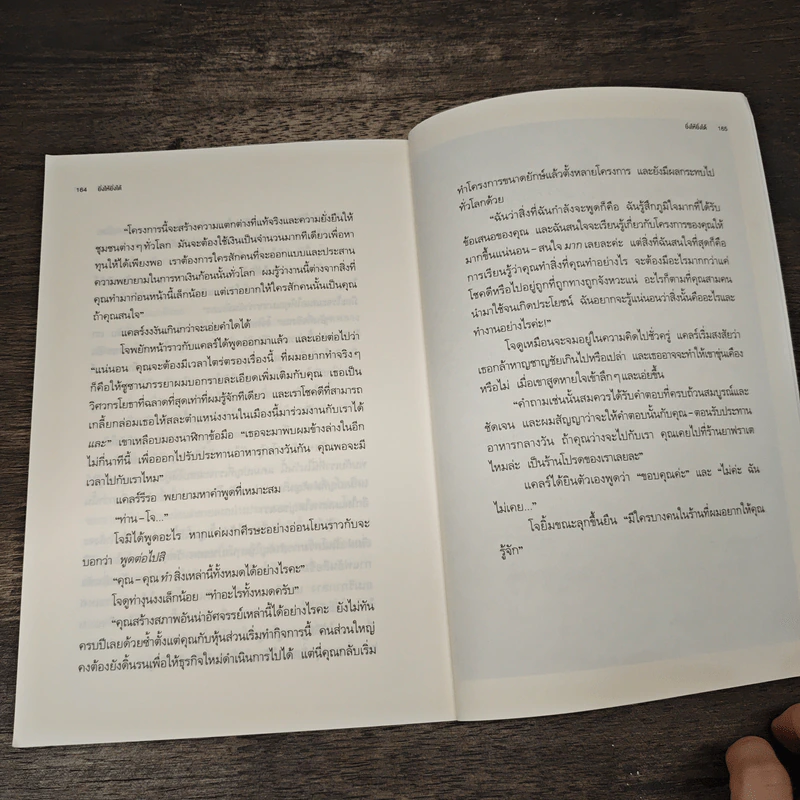 164 ยิ่งให้ยิ่งได้
“โครงการนี้จะสร้างความแตกต่างที่แท้จริงและความยั่งยืนให้
ชุมชนต่างๆ ทั่วโลก มันจะต้องใช้เงินเป็นจำนวนมากทีเดียวเพื่อหา
ทุนให้ได้เพียงพอ เราต้องการใครสักคนที่จะออกแบบและประสาน
ความพยายามในการหาเงินก้อนนั้นทั่วโลก ผมรู้ว่างานนี้ต่างจากสิ่งที่
คุณทำมาก่อนหน้านี้เล็กน้อย แต่เราอยากให้ใครสักคนนั้นเป็นคุณ
ถ้าคุณสนใจ”
แคลร์งงงันเกินกว่าจะเอ่ยคำใดได้
โจพยักหน้าราวกับแคลร์ได้พูดออกมาแล้ว และเอ่ยต่อไปว่า
“แน่นอน คุณจะต้องมีเวลาไตร่ตรองเรื่องนี้ ที่ผมอยากทำจริงๆ
ก็คือให้ซูซานภรรยาผมบอกรายละเอียดเพิ่มเติมกับคุณ เธอเป็น
วิศวกรโยธาที่ฉลาดที่สุดเท่าที่ผมรู้จักทีเดียว และเราโชคดีที่สามารถ
เกลี้ยกล่อมเธอให้สละตำแหน่งงานในเมืองนี้มาร่วมงานกับเราได้
และ” เขาเหลือบมองนาฬิกาข้อมือ “เธอจะมาพบผมข้างล่างในอีก
ไม่กี่นาทีนี้ เพื่อออกไปรับประทานอาหารกลางวันกัน คุณพอจะมี
เวลาไปกับเราไหม”
แคลร์รีรอ พยายามหาคำพูดที่เหมาะสม
“ท่าน – โจ...”
โจมิได้พูดอะไร หากแค่ผงกศีรษะอย่างอ่อนโยนราวกับจะ
บอกว่า พูดต่อไปสิ
“คุณ – คุณ ทำ สิ่งเหล่านี้ทั้งหมดได้อย่างไรคะ”
โจดูท่างุนงงเล็กน้อย “ทำอะไรทั้งหมดครับ”
“คุณสร้างสภาพอันน่าอัศจรรย์เหล่านี้ได้อย่างไรคะ ยังไม่ทัน
ครบปีเลยด้วยซ้ำตั้งแต่คุณกับหุ้นส่วนเริ่มทำกิจการนี้ คนส่วนใหญ่
คงต้องยังดิ้นรนเพื่อให้ธุรกิจใหม่ดำเนินการไปได้ แต่นี่คุณกลับเริ่ม
ยิ่งให้ยิ่งได้ 165
ทำโครงการขนาดยักษ์แล้วตั้งหลายโครงการ และยังมีผลกระทบไป
ทั่วโลกด้วย
“ฉันว่าสิ่งที่ฉันกำลังจะพูดก็คือ ฉันรู้สึกภูมิใจมากที่ได้รับ
ข้อเสนอของคุณ และฉันสนใจจะเรียนรู้เกี่ยวกับโครงการของคุณให้
มากขึ้นแน่นอน – สนใจ มาก เลยละค่ะ แต่สิ่งที่ฉันสนใจที่สุดก็คือ
การเรียนรู้ว่าคุณทำสิ่งที่คุณทำอย่างไร จะต้องมีอะไรมากกว่าแค่
โชคดีหรือไปอยู่ถูกที่ถูกทางถูกจังหวะแน่ อะไรก็ตามที่คุณสามคน
นำมาใช้จนเกิดประโยชน์ ฉันอยากจะรู้แน่นอนว่าสิ่งนั้นคืออะไรและ
ทำงานอย่างไรค่ะ!”
โจดูเหมือนจะจมอยู่ในความคิดไปชั่วครู่ แคลร์เริ่มสงสัยว่า
เธอกล้าหาญชาญชัยเกินไปหรือเปล่า และเธออาจจะทำให้เขาขุ่นเคือง
หรือไม่ เมื่อเขาสูดหายใจเข้าลึกๆ และเอ่ยขึ้น
“คำถามเช่นนั้นสมควรได้รับคำตอบที่ครบถ้วนสมบูรณ์และ
ชัดเจน และผมสัญญาว่าจะให้คำตอบนั้นกับคุณ – ตอนรับประทาน
อาหารกลางวัน ถ้าคุณว่างจะไปกับเรา คุณเคยไปที่ร้านยาฟราเต
ไหมล่ะ เป็นร้านโปรดของเราเลยละ”
แคลร์ได้ยินตัวเองพูดว่า “ขอบคุณค่ะ” และ “ไม่ค่ะ ฉัน
ไม่เคย...”
โจยิ้มขณะลุกขึ้นยืน “มีใครบางคนในร้านที่ผมอยากให้คุณ
รู้จัก”